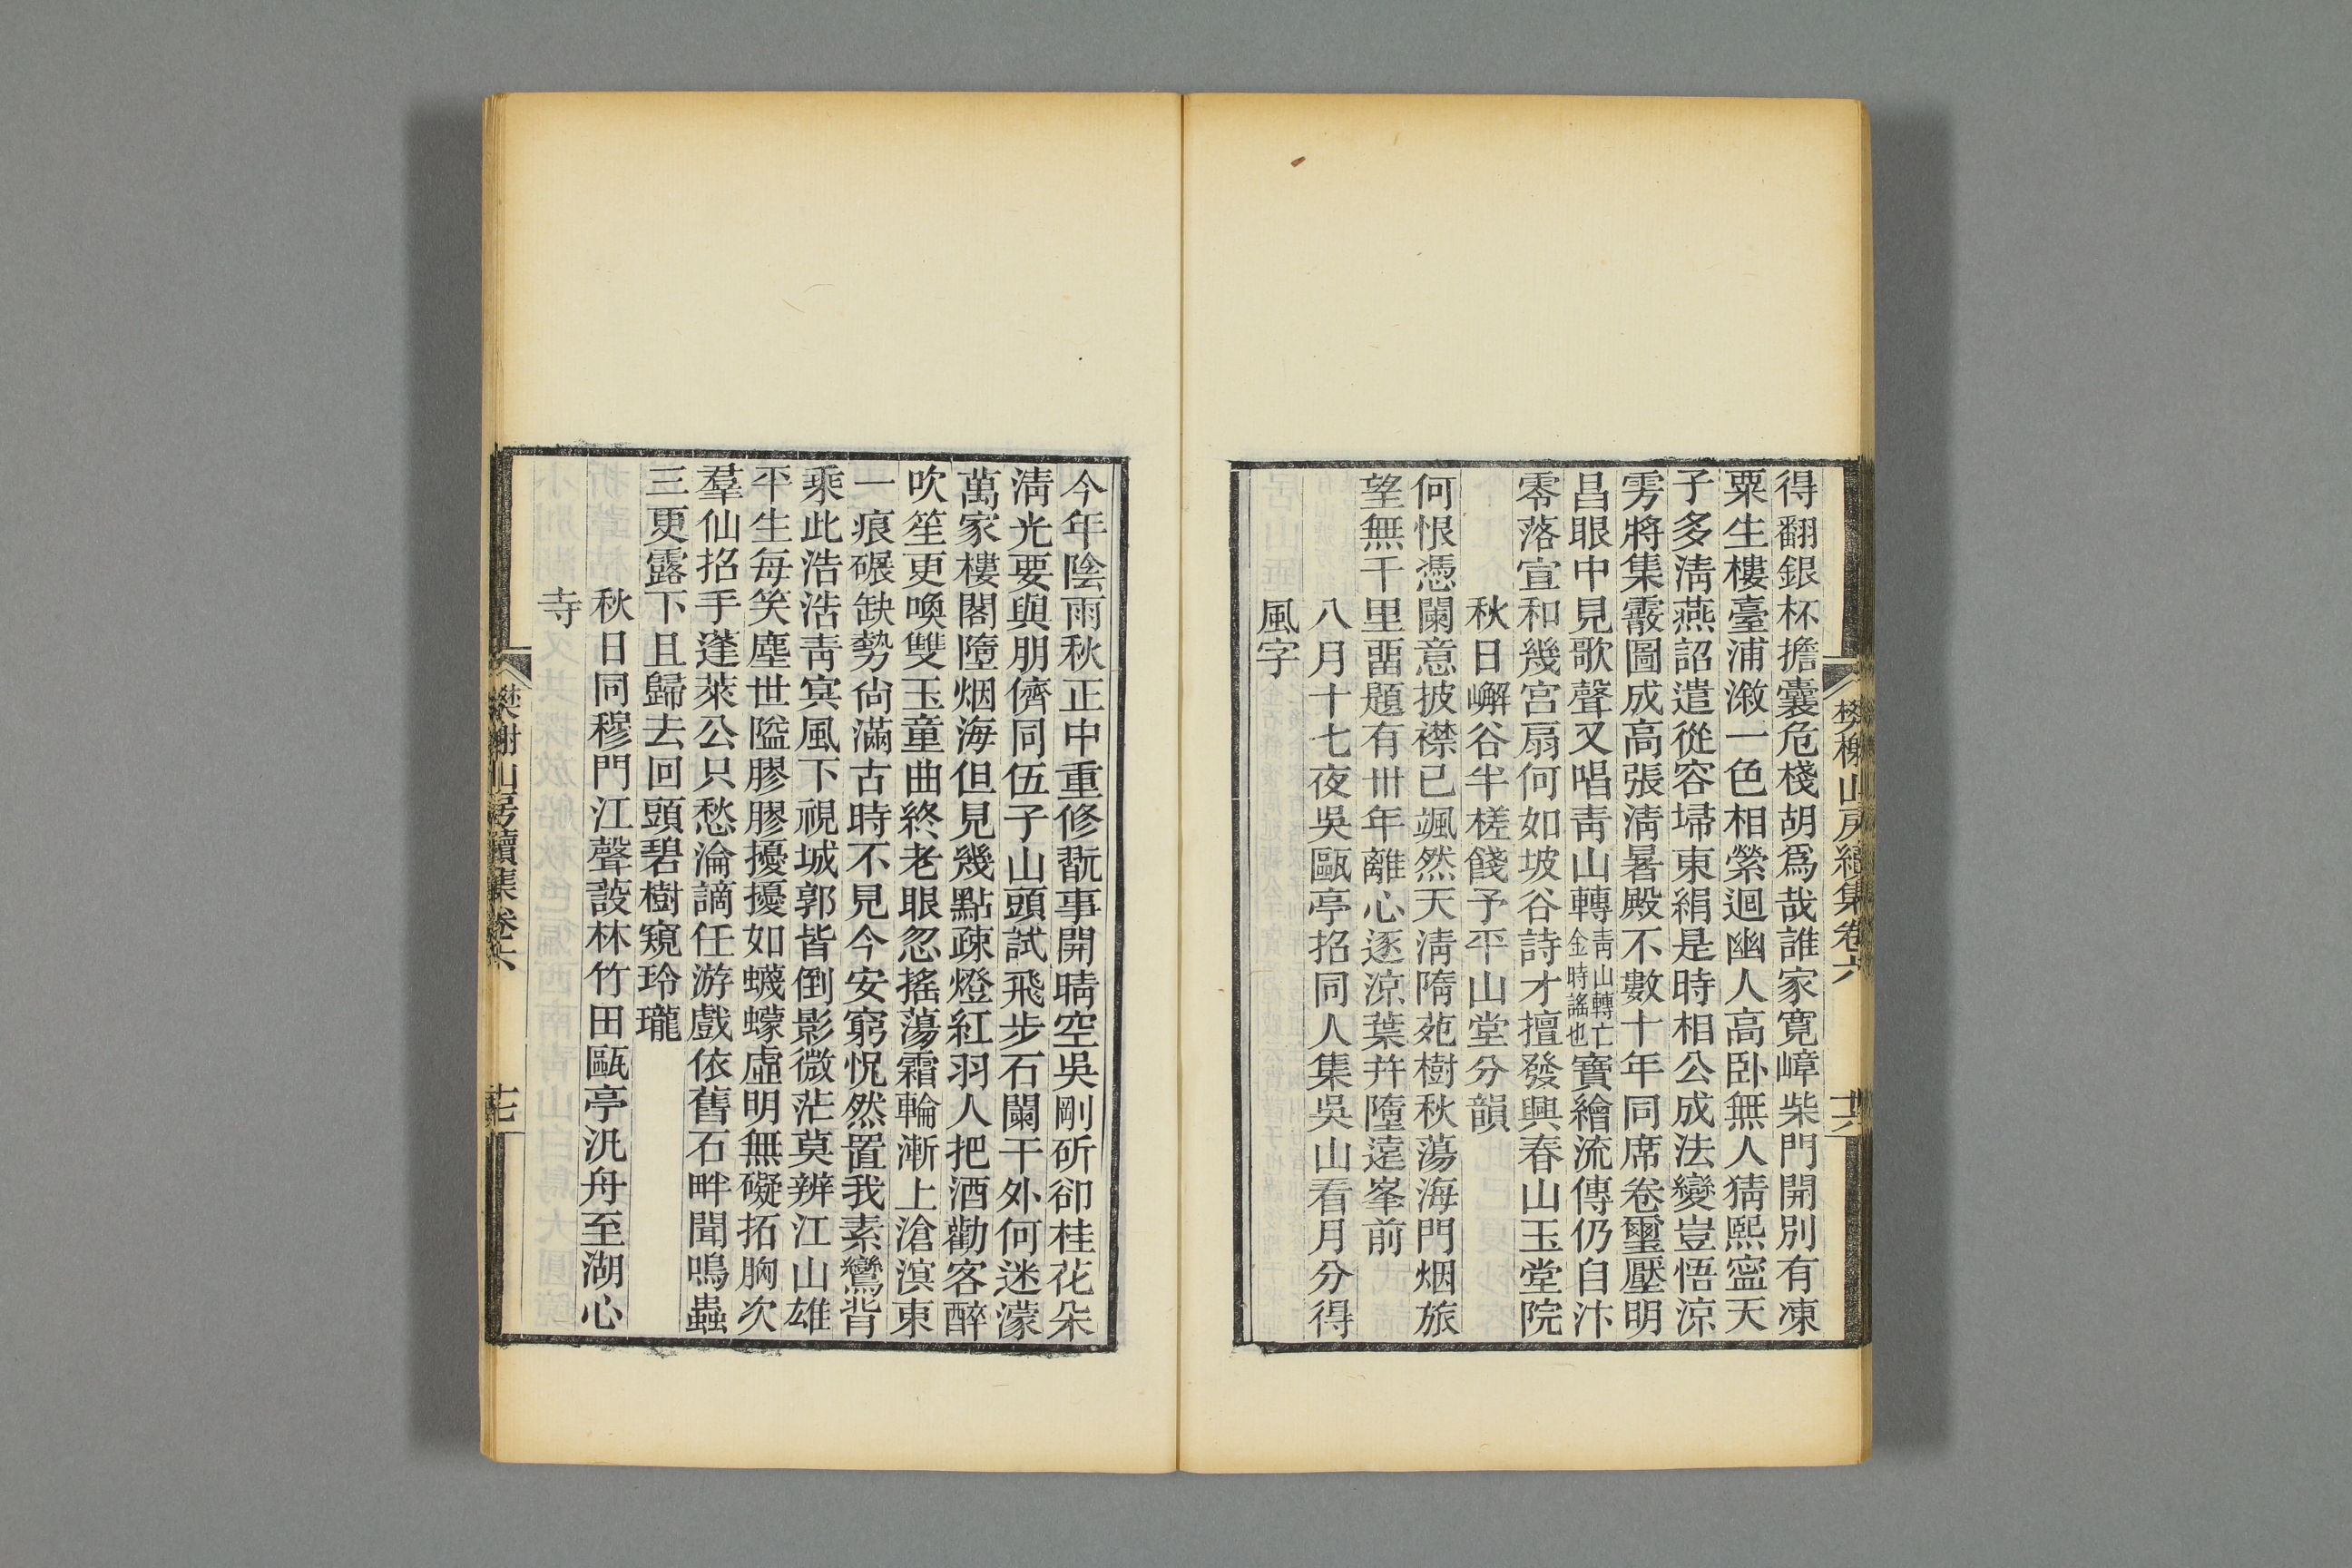 得翻銀杯擔囊危棧胡爲哉誰家寬嶂柴門開別有凍
粟生樓臺浦漵一色相縈迴幽人高卧無人猜熙寍天
子多淸燕詔遣從容埽東絹是時相公成法變豈悟涼
雱將集霰圖成高張淸暑殿不數十年同席卷璽壓明
昌眼中見歌聲又唱靑山轉靑山轉亡金時謠也寶繪流傳仍自汴
零落宣和幾宮扇何如坡谷詩才擅發興春山玉堂院
秋日嶰谷半槎餞予平山堂分韻
何恨憑闌意披襟已颯然天淸隋苑樹秋蕩海門烟旅
望無千里畱題有卅年離心逐涼葉幷墮遠峯前
八月十七夜吳甌亭招同人集吳山看月分得
風字
樊榭山房續集卷六
十六
今年陰雨秋正中重修翫事開晴空吳剛斫卻桂花朵
淸光要與朋儕同伍子山頭試飛步石闌干外何迷濛
萬家樓閣墮烟海但見幾點疎燈紅羽人把酒勸客醉
吹笙更喚雙玉童曲終老眼忽搖蕩霜輪漸上滄溟東
一痕碾缺勢尙滿古時不見今安窮怳然置我素鸞背
乘此浩浩靑冥風下視城郭皆倒影微茫莫辨江山雄
平生每笑塵世隘膠膠擾擾如蠛蠓虛明無礙拓胸次
羣仙招手蓬萊公只愁淪謫任游戲依舊石畔聞鳴蟲
三更露下且歸去回頭碧樹窺玲瓏
秋日同穆門江聲敱林竹田甌亭汎舟至湖心
寺
樊榭山房續集卷六
十七